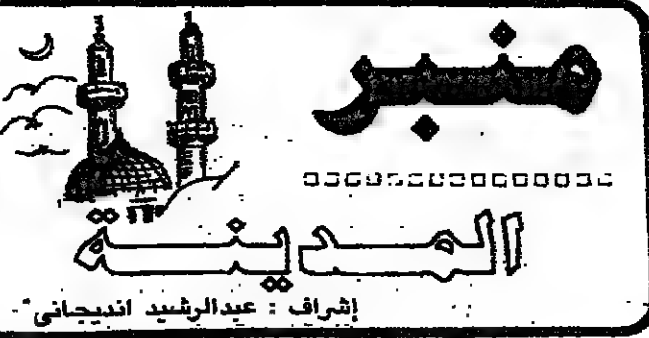 منبر
المدينة
إشراف : عبدالرشيد انديجاني